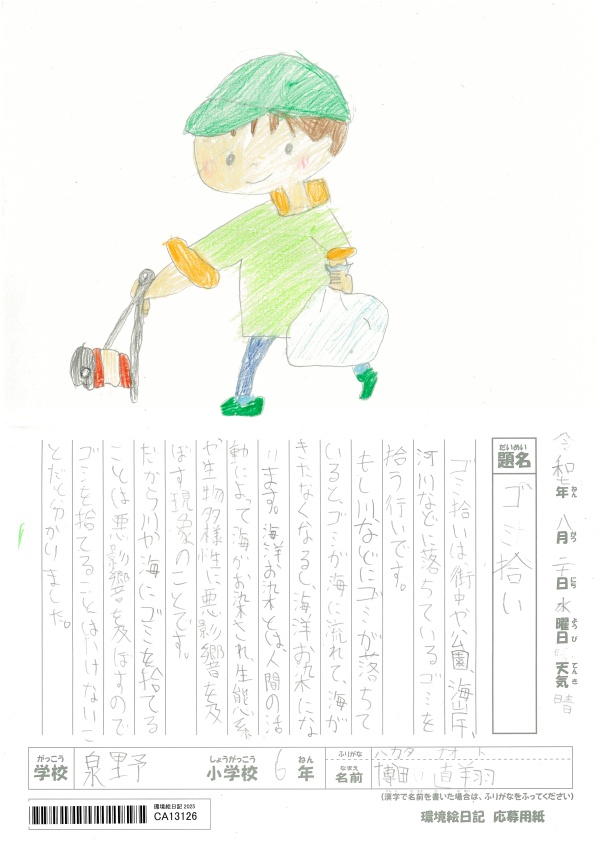 令和七年八月二十日水曜日 天気 晴
ねん がつ にち ようび てんき
だいめい
題名
ゴミ拾い
ゴミ拾いは、街中や公園、海岸、
河川などに落ちているゴミを
拾う行いです。
もし川などにゴミが落ちて
いると、ゴミが海に流れて、海が
きたなくなるし、海洋お染にな
ります。海洋お染とは、人間の活
動によって海がお染され、生態系
や生物多様性に悪影響を及
ぼす現象のことです。
だから川や海にゴミを捨てる
ことは悪影響を及ぼすので
ゴミを捨てることはいけないこ
とだと分かりました。
がっこう しょうがっこう ねん
学校 泉野 小学校 6年
ふりがな ハカタ ナオト
なまえ
名前 博田 直翔
(漢字で名前を書いた場合は、ふりがなをふってください)
環境絵日記 2025
CA13126
環境絵日記 応募用紙